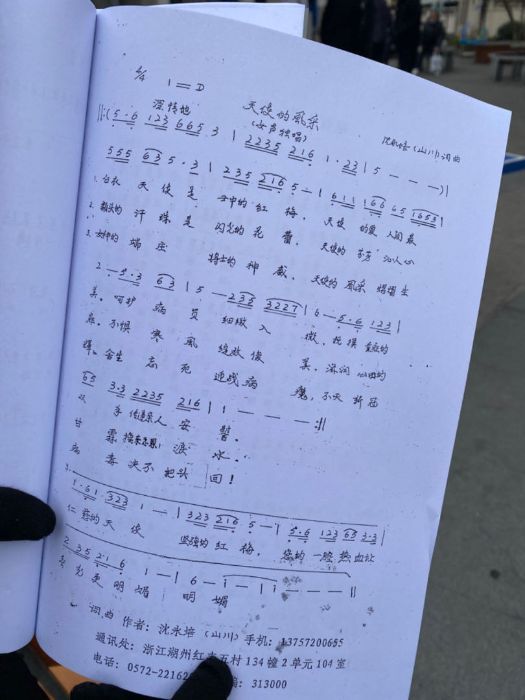 4/4 1=D
天使的風采
深情地 (女声独唱) 沈永培(山川)词曲
‖:(5·6 123 665 3 | 2235 216 1·23 | 5 — — —)|
555 635·3 | 235 216 5 — | 611 166 65 1653 |
1.白衣 天使 是 雪中的 红 梅, 天使 的爱 人间最
2. 额头的 汗 珠 是 闪光的 花 蕾, 天使的 芬芳 沁人心
3. 端庄 将士的 神 威, 天使的 風采 熠熠生
2 — 5·3 63 | 5 — 235 3227 | 6 — 5·6 123 |
美。呵护 病 员 细微 入 微, 抚摸
扉。不惧 寒 風 绽放 俊 美, 滋润 心田的
辉。舍生 忘 死 迎战 病 魔, 不灭
65 3·3 2235 216 | 1 — — — :‖
双 手 传递亲人 安 慰。
甘 霖 淚 水。
病 毒 决不 把头 回!
3.
1·61·323 1 — | 323 216 5 — | 5·6 123 65 2·3 |
仁慈的 天 使 坚强的 红 梅, 您的 一腔 热血让
2 35 2·16 1 — | 6 — i — | i — — — ‖
更 明 媚 明 媚
词.曲 作者: 沈永培 (山川) 手机: 13757200655
通讯处: 浙江湖州红 五村 134 幢 2 单元 104 室
电话: 0572-22162 编: 313000